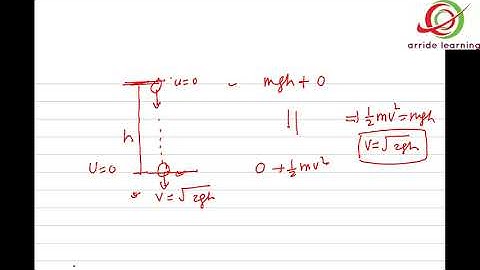 arride learning
u=0 ~ mgh + 0
h || ⇒ ½mv²=mgh
V=√2gh
U=0 0 + ½mv²
V=√2gh